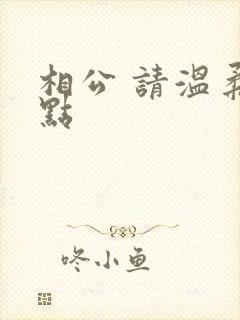 相公 請溫柔
點
咚小鱼